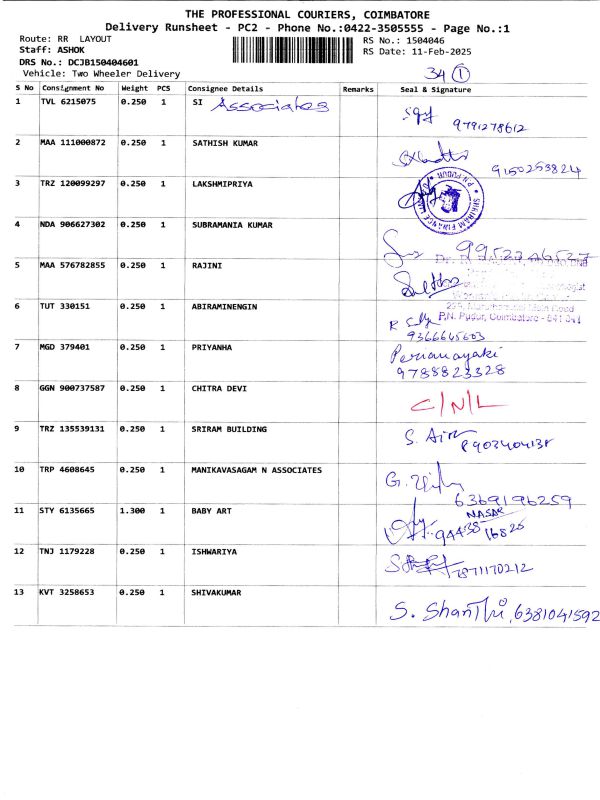 THE PROFESSIONAL COURIERS, COIMBATORE
Delivery Runsheet - PC2 - Phone No.:0422-3505555 - Page No.:1
Route: RR LAYOUT RS No.: 1504046
Staff: ASHOK RS Date: 11-Feb-2025
DRS No.: DCJB150404601
Vehicle: Two Wheeler Delivery 34 1
S No Consignment No Weight PCS Consignee Details Remarks Seal & Signature
1 TVL 6215075 0.250 1 SI Associates
9791278612
2 MAA 111000872 0.250 1 SATHISH KUMAR
9150253824
3 TRZ 120099297 0.250 1 LAKSHMIPRIYA
SHRIRAM FINANCE P.N. PUDUR
4 NDA 906627302 0.250 1 SUBRAMANIA KUMAR
5 MAA 576782855 0.250 1 RAJINI
P.N. Pudur, Coimbatore - 641 041
6 TUT 330151 0.250 1 ABIRAMINENGIN
9366645603
7 MGD 379401 0.250 1 PRIYANHA
9788823328
8 GGN 900737587 0.250 1 CHITRA DEVI C/N/L
9 TRZ 135539131 0.250 1 SRIRAM BUILDING
10 TRP 4608645 0.250 1 MANIKAVASAGAM N ASSOCIATES
6369196259
11 STY 6135665 1.300 1 BABY ART NASAR
94438 16826
12 TNJ 1179228 0.250 1 ISHWARIYA
7871170212
13 KVT 3258653 0.250 1 SHIVAKUMAR
S. Shanthi, 6381041592